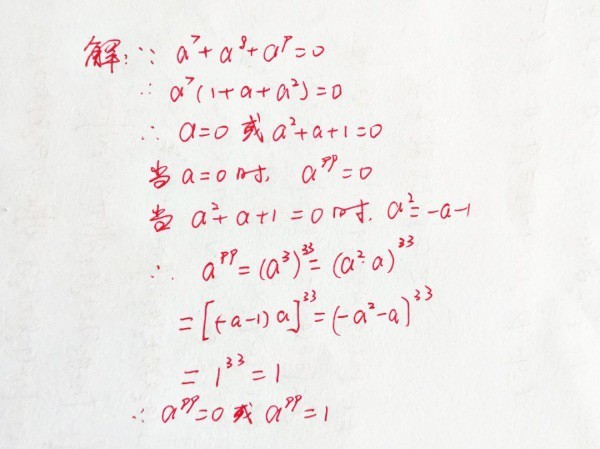 解:∵ a⁷+a⁸+a⁹=0
∴ a⁷(1+a+a²)=0
∴ a=0 或 a²+a+1=0
当 a=0 时, a⁹⁹=0
当 a²+a+1=0 时, a²=-a-1
∴ a⁹⁹=(a³)³³=(a²·a)³³
=[(-a-1)a]³³=(-a²-a)³³
=1³³=1
∴ a⁹⁹=0 或 a⁹⁹=1